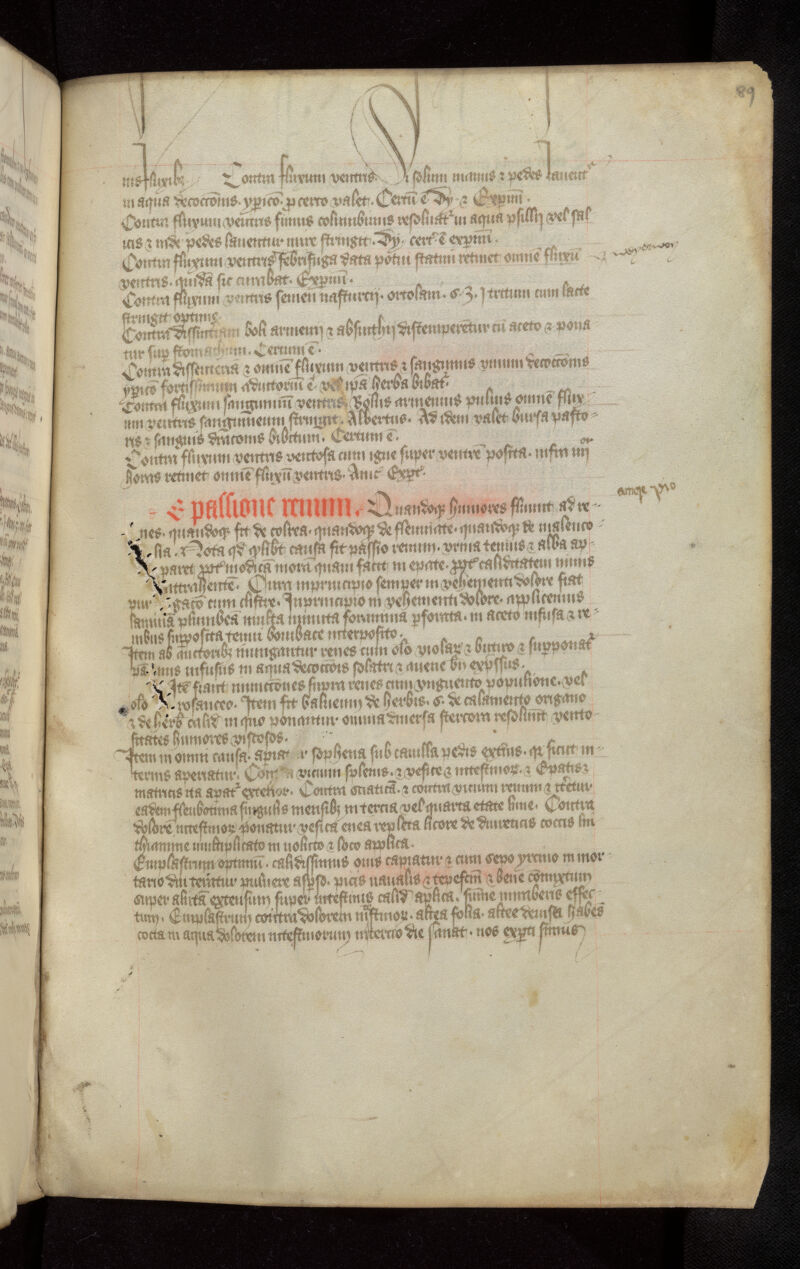 89
nis fluxibꝫ Contra fluxum ventris Si solum manus ⁊ pedes lauent᷑
in aqua decoctōnis. yp̄ico. p cetro valet. Certū ē. Dy. ⁊ Exp̄im̄.
Contra fluxum ventris fimus columbinus resoluat᷑ in aqua psillij vel sal
icis ⁊ inde pedes lauentur mire stringit. Dy. cert᷑ ē exp̄im̄.
Contra fluxum ventris febrifuga data potui statim retinet omnē fluxū
ventris. quidā sic curabat. Exp̄im̄.
Contra fluxum ventris semen nasturcij. ortolani. s. ʒ. j tritum cum lacte
stringit optime
Contra dissintiam boli armenij ⁊ absinthij distemperētur cū aceto ⁊ pona
tur sup stomachum. Certum ē.
Contra dissenteriā ⁊ omnē fluxum ventris ⁊ sanguinis vinum decoctōnis
yp̄ico fortissimum adiutoriū ē. vel ip̄a herba bibat᷑.
Contra fluxum sanguineū ventris. Bolus armenius puluis omnē flux
um ventris sanguineum stringit. Albertus. Ad idem valet bursa pasto
ris ⁊ sanguis draconis bibitum. Certum ē.
Contra fluxum ventris ventosa cum igne super ventrē posita. infra iiij
horas retinet omnē fluxū ventris. Auic᷑ Exp̄t᷑.
E passione renum. Quandoqꝫ humores fluunt ad re
nes. quandoqꝫ fit de colera. quandoqꝫ de flenmate. quandoqꝫ de malenco
lia. Nota qd q̄libt causa fit passio renum. vrina tenuis ⁊ alba ap
paret ꝓpt᷑ modicā morā quam facit in epate. ꝓpt᷑ caliditatem nimis
attrahentē. Cura in principio semper in vehementi dolore fiat
pur gacō cum clistre. In principio in vehementi dolore. applicemus
laminā plumbeā multa minuta foramina ꝑforata. in aceto infusa ⁊ re
nibus supposita tenui bombace interposito.
Item ab auctoribꝫ inungantur renes cum oĺo violaꝝ ⁊ butiro ⁊ supponat᷑
pannus infusus in aqua decoctōis solatri ⁊ auene bn̄ exp̄ssus.
Itē fiant inunctōnes supra renes cum vnguento populione. vel
oĺo rosaceo. Item fit balneum de herbis. s. de calamento origano
⁊ de herb᷑ calid᷑ in quo ponantur omnia diuersa stercora resoluūt vento
sitates humores viscosos.
Item in omni causa. apiat᷑ sophena sub cauilla pedis ext᷑ius. q᷑ sicut in
terius aperiatur. Contra vicium splenis. ⁊ vesice ⁊ intestinoꝝ. ⁊ Epatis ⁊
matricis ita apiat᷑ exterior. Contra sciaticā. ⁊ contra vicium renum
eadem fleubotima singulis mensibꝫ in tercia vel quarta etate lune. Contra
dolorē intestinoꝝ ponatur vesica enea repleta licore de diureticis coctis lin
thiamine multiplicato inuoluto ⁊ loco applica.
Emplastrum optimū. calidissimus ouis capiatur ⁊ cum sepo yrcino in mor
tario diu teratur puluere asp̄so. picis naualis ⁊ bene comixtum
super alutā extensum super intestinis calid᷑ aplica. sūme mirabens effec
tum. Emplastrum contra dolorem intestinoꝝ. altea folia. altee
cocta in aqua dolorem intestinorum in tercio die sanat. nos exp̄ti sumus